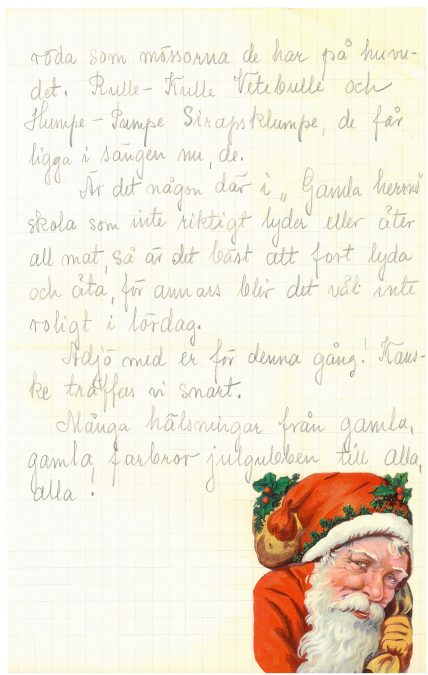 röda som mössorna de har på huvu-
det. Rulle-Kulle Vetebulle och
Humpe-Pumpe Sirapsklumpe, de får
ligga i sängen nu, de.
Är det någon där i „Gamla herrns"
skola som inte riktigt lyder eller äter
all mat, så är det bäst att fort lyda
och äta, för annars blir det väl inte
roligt i lördag.
Adjö med er för denna gång! Kans-
ke träffas vi snart.
Många hälsningar från gamla,
gamla farbror julgubben till alla,
alla!